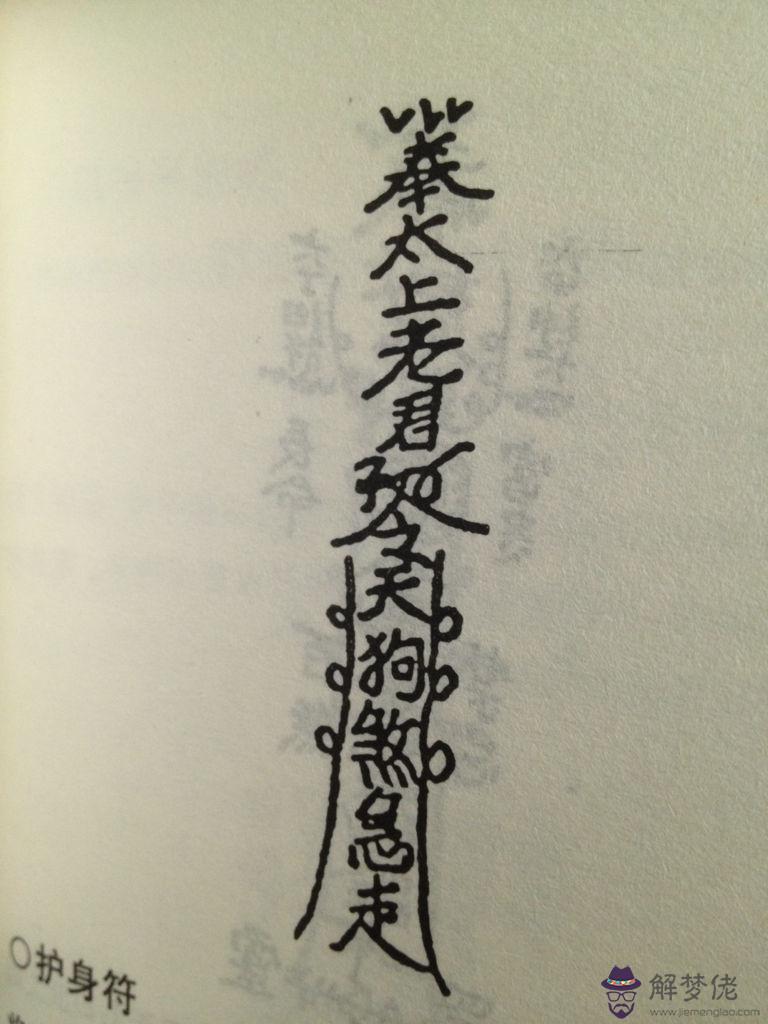 奉太上老君敕令天狗煞急走
○护身符
解梦佬
www.jiemenglao.com